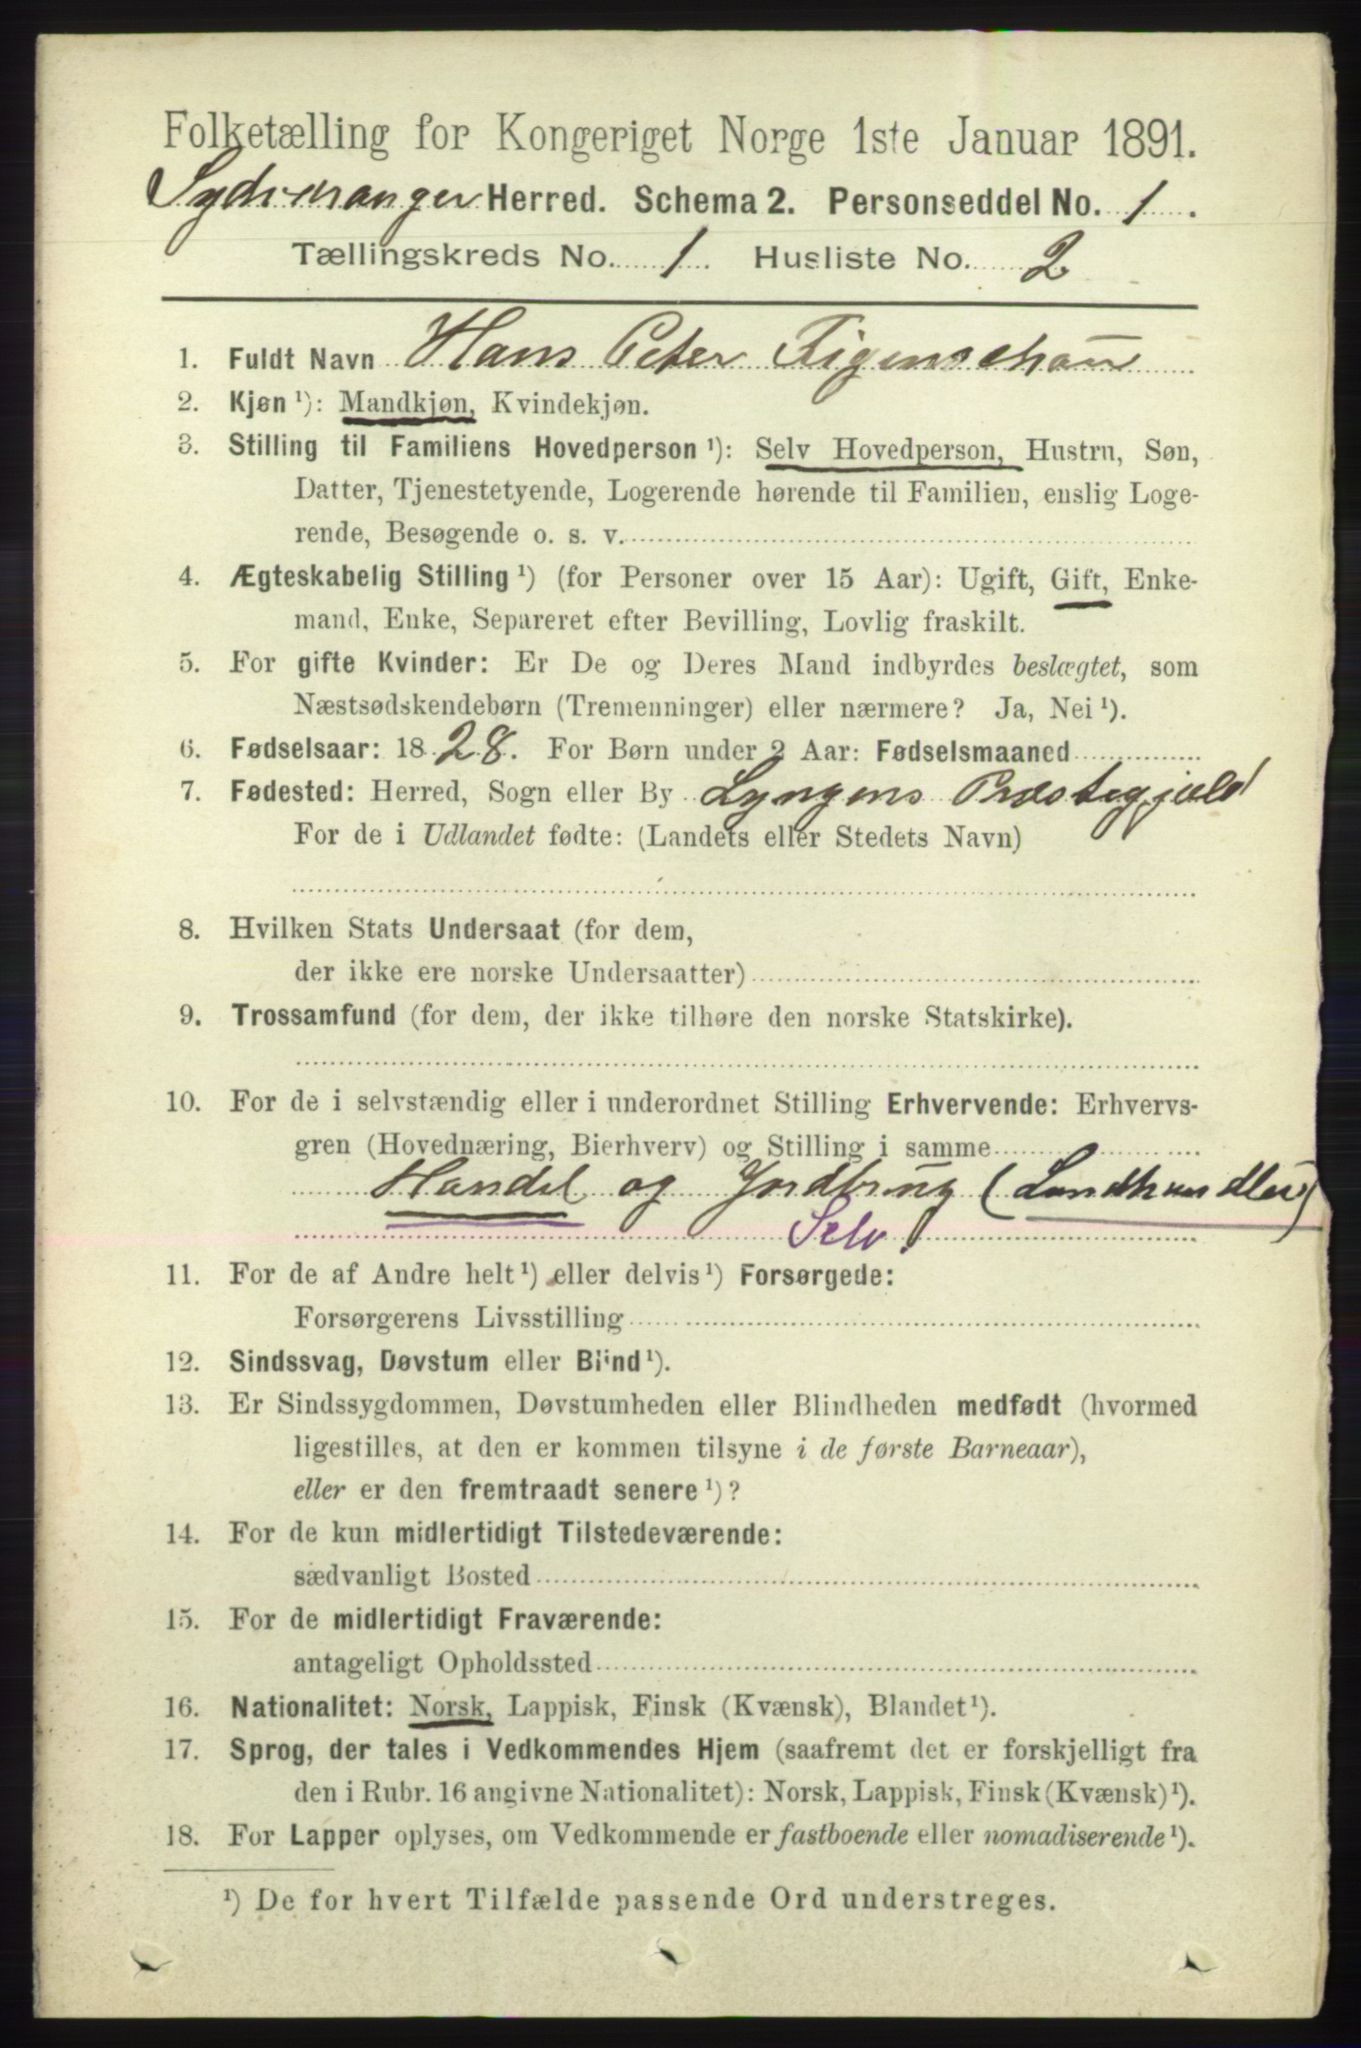 Folketælling for Kongeriget Norge 1ste Januar 1891.
Sydvaranger Herred. Schema 2. Personseddel No. 1.
Tællingskreds No. 1 Husliste No. 2
1. Fuldt Navn Hans Peter Figenschou
2. Kjøn ¹): Mandkjøn, Kvindekjøn.
3. Stilling til Familiens Hovedperson ¹): Selv Hovedperson, Hustru, Søn,
Datter, Tjenestetyende, Logerende hørende til Familien, enslig Loge-
rende, Besøgende o. s. v.
4. Ægteskabelig Stilling ¹) (for Personer over 15 Aar): Ugift, Gift, Enke-
mand, Enke, Separeret efter Bevilling, Lovlig fraskilt.
5. For gifte Kvinder: Er De og Deres Mand indbyrdes beslægtet, som
Næstsødskendebørn (Tremenninger) eller nærmere? Ja, Nei ¹).
6. Fødselsaar: 1828. For Børn under 2 Aar: Fødselsmaaned
7. Fødested: Herred, Sogn eller By Lyngens Præstegjæld
For de i Udlandet fødte: (Landets eller Stedets Navn)
8. Hvilken Stats Undersaat (for dem,
der ikke ere norske Undersaatter)
9. Trossamfund (for dem, der ikke tilhøre den norske Statskirke).
10. For de i selvstændig eller i underordnet Stilling Erhvervende: Erhvervs-
gren (Hovednæring, Bierhverv) og Stilling i samme
Handel og Jordbrug (Landhandler)
Selv.
11. For de af Andre helt ¹) eller delvis ¹) Forsørgede:
Forsørgerens Livsstilling
12. Sindssvag, Døvstum eller Blind ¹).
13. Er Sindssygdommen, Døvstumheden eller Blindheden medfødt (hvormed
ligestilles, at den er kommen tilsyne i de første Barneaar),
eller er den fremtraadt senere ¹)?
14. For de kun midlertidigt Tilstedeværende:
sædvanligt Bosted
15. For de midlertidigt Fraværende:
antageligt Opholdssted
16. Nationalitet: Norsk, Lappisk, Finsk (Kvænsk), Blandet ¹).
17. Sprog, der tales i Vedkommendes Hjem (saafremt det er forskjelligt fra
den i Rubr. 16 angivne Nationalitet): Norsk, Lappisk, Finsk (Kvænsk) ¹).
18. For Lapper oplyses, om Vedkommende er fastboende eller nomadiserende ¹).
¹) De for hvert Tilfælde passende Ord understreges.